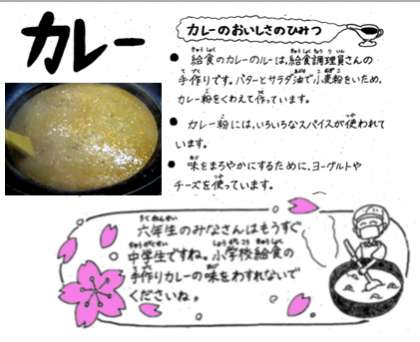 カレー
カレーのおいしさのひみつ
● 給食のカレーのルーは、給食調理員さんの
手作りです。バターとサラダ油で小麦粉をいため、
カレー粉をくわえて作っています。
● カレー粉には、いろいろなスパイスが使われて
います。
● 味をまろやかにするために、ヨーグルトや
チーズを使っています。
六年生のみなさんはもうすぐ
中学生ですね。小学校給食の
手作りカレーの味をわすれないで
くださいね。